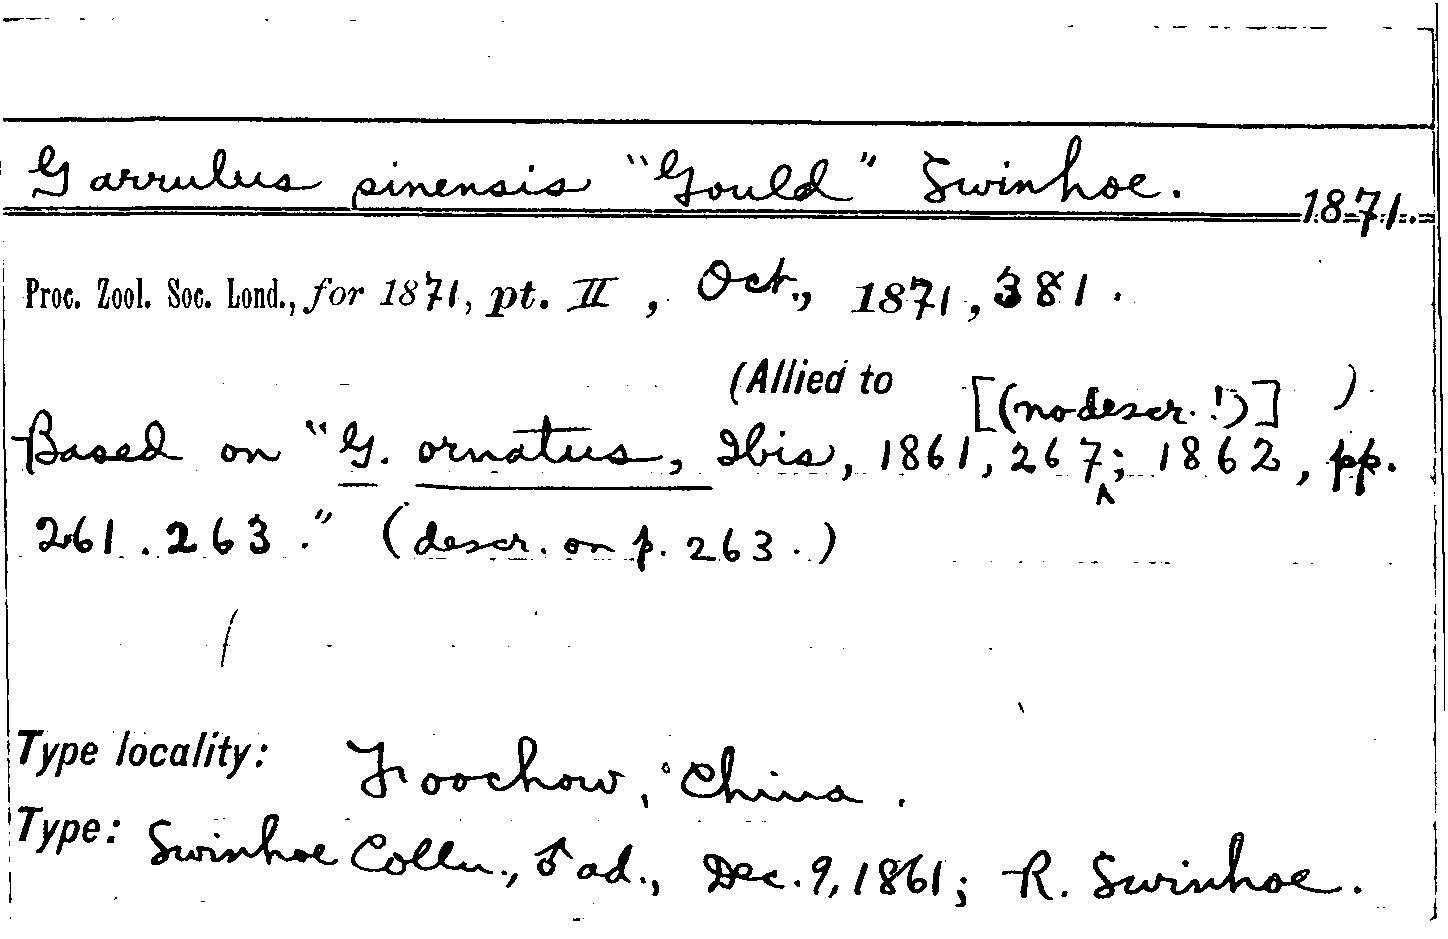 Garrulus sinensis "Gould" Swinhoe. 1871.
Proc. Zool. Soc. Lond., for 1871, pt. II, Oct., 1871, 381.
(Allied to [(no descr.!)] )
Based on "G. ornatus, Ibis, 1861, 267; 1862, pp.
261. 263." (descr. on p. 263.)
Type locality: Foochow, China.
Type: Swinhoe Colln., ♂ ad., Dec. 9, 1861; R. Swinhoe.